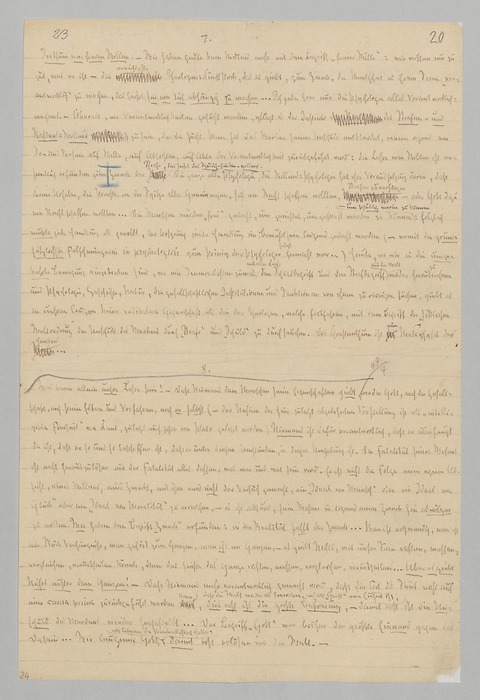 23 7. 20
Irrthum vom freien Willen. — Wir haben heute kein Mitleid mehr mit dem Begriff „freier Wille“: wir wissen nur zu
gut, was er ist — das anrüchigste Theologen-Kunststück, das es giebt, zum Zweck, die Menschheit in ihrem Sinne „ver-
antwortlich“ zu machen, das heißt sie von sich abhängig zu machen... Ich gebe hier nur die Psychologie alles Verantwortlich-
machens. — Überall, wo Verantwortlichkeiten gesucht werden, pflegt es der Instinkt des Strafen- und
Richten-Wollens zu sein, der da sucht. Man hat das Werden seiner Unschuld entkleidet, wenn irgend ein
So-und-so-Sein auf Wille, auf Absichten, auf Akte der Verantwortlichkeit zurückgeführt wird: die Lehre vom Willen ist we-
sentlich erfunden zum Zweck der Strafe, das heißt des Schuldig-finden-wollens.
Die ganze alte Psychologie, die Willens-Psychologie hat ihre Voraussetzung darin, daß
deren Urheber, die Priester an der Spitze alter Gemeinwesen, sich ein Recht schaffen wollten, Strafen zu verhängen — oder Gott dazu
ein Recht schaffen wollten... Die Menschen wurden „frei“ gedacht, um gerichtet, um gestraft werden zu können, um schuldig werden zu können: folglich
mußte jede Handlung als gewollt, der Ursprung jeder Handlung im Bewußtsein liegend gedacht werden (— womit die
Falschmünzerei in psychologicis zum Princip der Psychologie selbst gemacht war...) Heute, wo wir in die
Bewegung eingetreten sind, wo wir Immoralisten zumal mit aller Kraft den Schuldbegriff und den Strafbegriff aus der Welt wieder herauszunehmen
und Psychologie, Geschichte, Natur, die gesellschaftlichen Institutionen und Sanktionen von ihnen zu reinigen suchen, giebt es
in unsern Augen keine radikalere Gegnerschaft als die der Theologen, welche fortfahren, mit dem Begriff der „sittlichen
Weltordnung“ die Unschuld des Werdens durch „Strafe“ und „Schuld“ zu durchseuchen. Das Christenthum ist eine Metaphysik des
Henkers...
8.
Was kann allein unsre Lehre sein? — Daß Niemand dem Menschen seine Eigenschaften giebt, weder Gott, noch die Gesell-
schaft, noch seine Eltern und Vorfahren, noch er selbst (— der Unsinn der hier zuletzt abgelehnten Vorstellung ist als „intelli-
gible Freiheit“ von Kant, vielleicht auch schon von Plato gelehrt worden). Niemand ist dafür verantwortlich, daß er überhaupt
da ist, daß er so und so beschaffen ist, daß er unter diesen Umständen, in dieser Umgebung ist. Die Fatalität seines Wesens
ist nicht herauszulösen aus der Fatalität alles dessen, was war und was sein wird. Er ist nicht die Folge einer eignen Ab-
sicht, eines Willens, eines Zwecks, mit ihm wird nicht der Versuch gemacht, ein „Ideal von Mensch“ oder ein „Ideal von
Glück“ oder ein „Ideal von Moralität“ zu erreichen, — es ist absurd, sein Wesen in irgend einen Zweck hin abwälzen
zu wollen. Wir haben den Begriff „Zweck“ erfunden: in der Realität fehlt der Zweck... Man ist nothwendig, man ist
ein Stück Verhängniß, man gehört zum Ganzen, man ist im Ganzen, — es giebt Nichts, was unser Sein richten, messen,
vergleichen, verurtheilen könnte, denn das hieße das Ganze richten, messen, vergleichen, verurtheilen... Aber es giebt
Nichts außer dem Ganzen! — Daß Niemand mehr verantwortlich gemacht wird, daß die Art des Seins nicht auf
eine causa prima zurückgeführt werden darf, daß die Welt weder als Sensorium, noch als „Geist“ eine Einheit ist, dies erst ist die große Befreiung, — damit erst ist die Un-
schuld des Werdens wieder hergestellt... Der Begriff „Gott“ war bisher der größte Einwand gegen das
Dasein... Wir leugnen Gott, wir leugnen die Verantwortlichkeit in Gott: damit erst erlösen wir die Welt. —
24